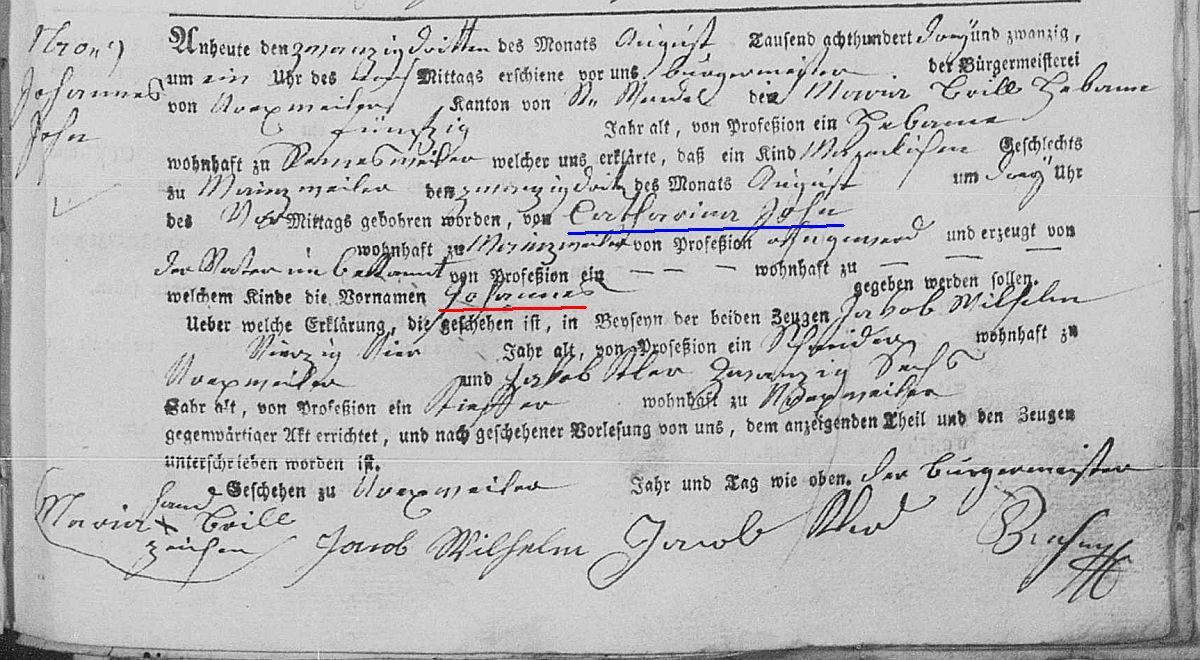 Johannes
John
Anheute den zwanzig dritten des Monats August Tausend achthundert drey und zwanzig,
um ein Uhr des Mittags erschiene vor uns bürgermeister der Bürgermeisterei
von Urexweiler Kanton von St. Wendel den Maria Brill Hebame
fünfzig Jahr alt, von Profeßion ein Hebame
wohnhaft zu welcher uns erklärte, daß ein Kind Geschlechts
zu Mainzweiler den zwanzig dritt des Monats August um drey Uhr
des Vor Mittags gebohren worden, von Catharina John
wohnhaft zu Mainzweiler von Profeßion und erzeugt von
der Vater unbekannt von Profeßion ein — — — wohnhaft zu — — —
welchem Kinde die Vornamen Johannes gegeben werden sollen.
Ueber welche Erklärung, die geschehen ist, in Beyseyn der beiden Zeugen Jakob Wilhelm
Vierzig Vier Jahr alt, von Profeßion ein Schneider wohnhaft zu
Urexweiler und Jakob Zwanzig Sechs
Jahr alt, von Profeßion ein wohnhaft zu Urexweiler
gegenwärtiger Akt errichtet, und nach geschehener Vorlesung von uns, dem anzeigenden Theil und den Zeugen
unterschrieben worden ist.
Geschehen zu Urexweiler Jahr und Tag wie oben. der bürgermeister
hand
Maria x Brill
zeichen
Jacob Wilhelm Jacob